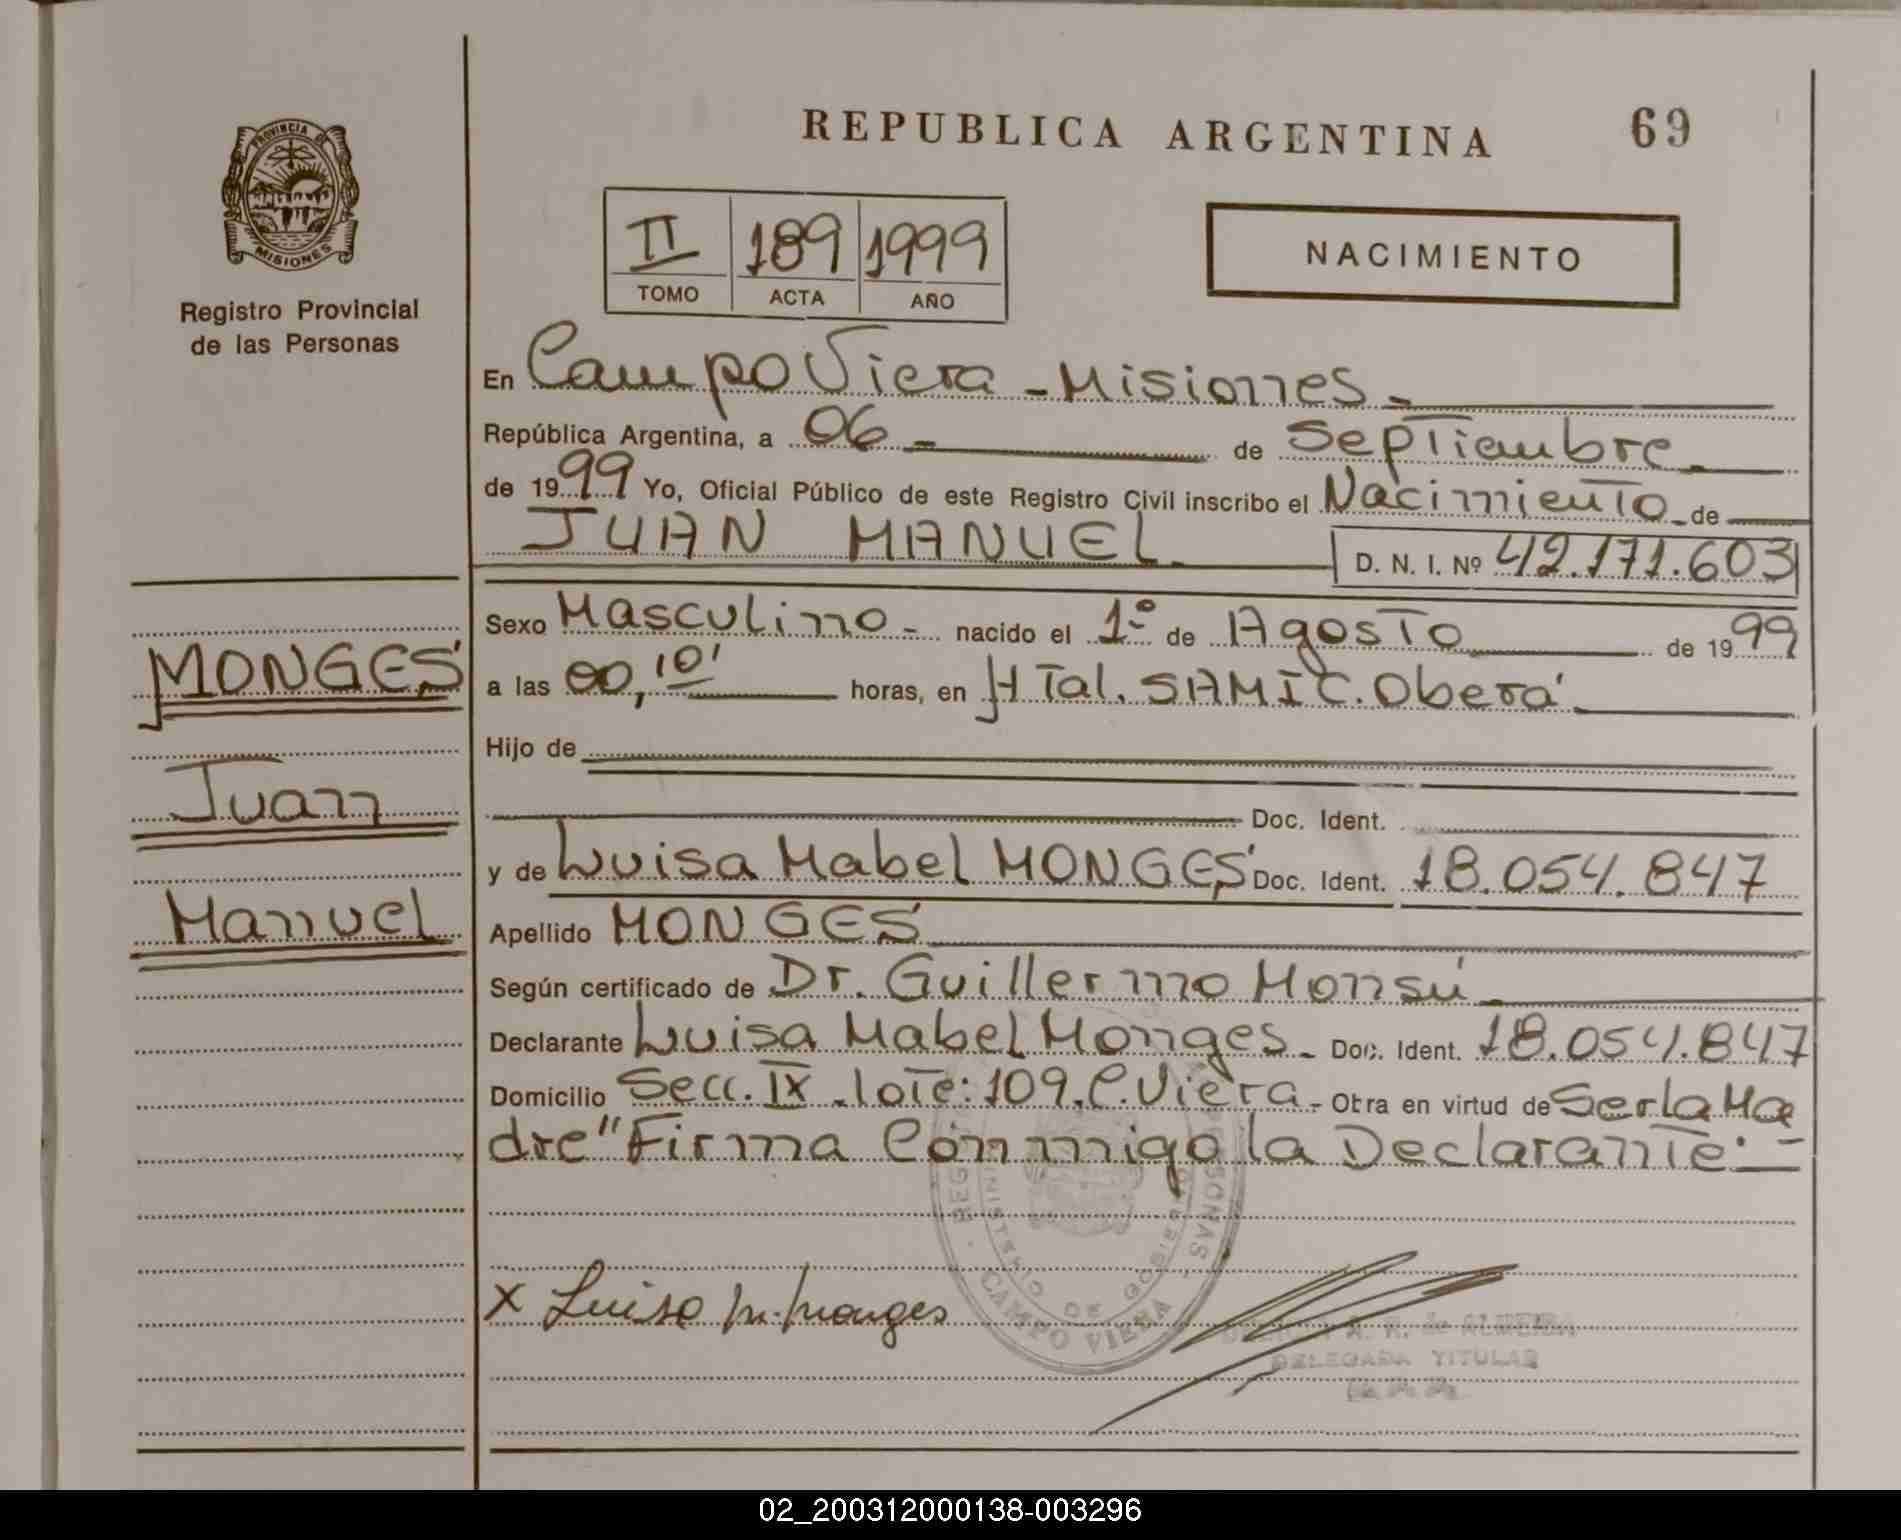 REPUBLICA ARGENTINA 69
PROVINCIA DE
MISIONES
Registro Provincial
de las Personas
II 189 1999
TOMO ACTA AÑO
NACIMIENTO
En Campo Viera - Misiones -
República Argentina, a 06 - de Septiembre
de 1999 Yo, Oficial Público de este Registro Civil inscribo el Nacimiento de
JUAN MANUEL D. N. I. Nº 42.171.603
Sexo Masculino - nacido el 1º de Agosto de 1999
a las 00,10' horas, en HTal. SAMIC. Oberá
Hijo de
Doc. Ident.
y de Luisa Mabel MONGES Doc. Ident. 18.054.847
Apellido MONGES
Según certificado de Dr. Guillermo Monsú
Declarante Luisa Mabel Monges - Doc. Ident. 18.054.847
Domicilio Secc. IX - lote: 109. C. Viera - Obra en virtud de Ser la Ma
dre" Firma Conmigo la Declarante. -
MONGES
Juan
Manuel
X Luisa M. Monges
MINISTERIO DE GOBIERNO
CAMPO VIERA
de ALMEIDA
DELEGADA TITULAR
02_200312000138-003296